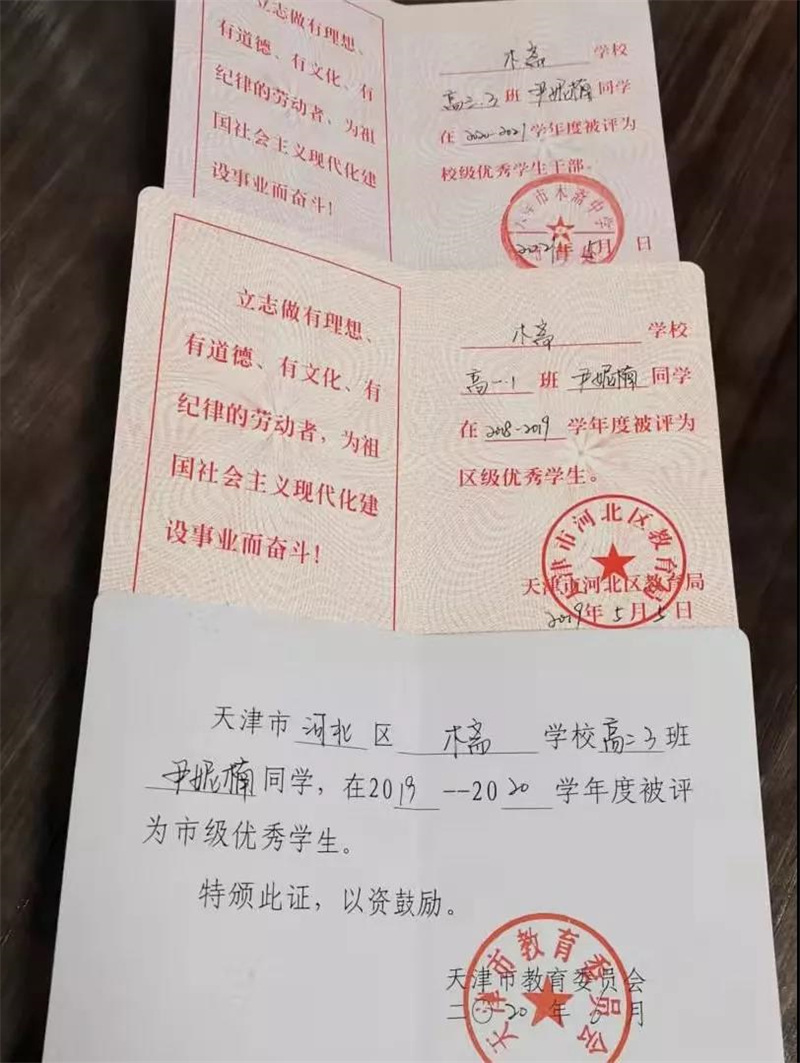 立志做有理想、
有道德、有文化、有
纪律的劳动者、为祖
国社会主义现代化建
设事业而奋斗！
木斋 学校
高三.3 班 尹妮楠 同学
在 2020-2021 学年度被评为
校级优秀学生干部。
天津市木斋中学
2021年 5月 日
立志做有理想、
有道德、有文化、有
纪律的劳动者，为祖
国社会主义现代化建
设事业而奋斗！
木斋 学校
高一.1 班 尹妮楠 同学
在 2018-2019 学年度被评为
区级优秀学生。
天津市河北区教育局
天津市河北区教育局
2019年 5月 5日
天津市 河北 区 木斋 学校 高二3 班
尹妮楠 同学，在2019--2020 学年度被评
为市级优秀学生。
特颁此证，以资鼓励。
天津市教育委员会
天津市教育委员会
二〇20 年 6 月